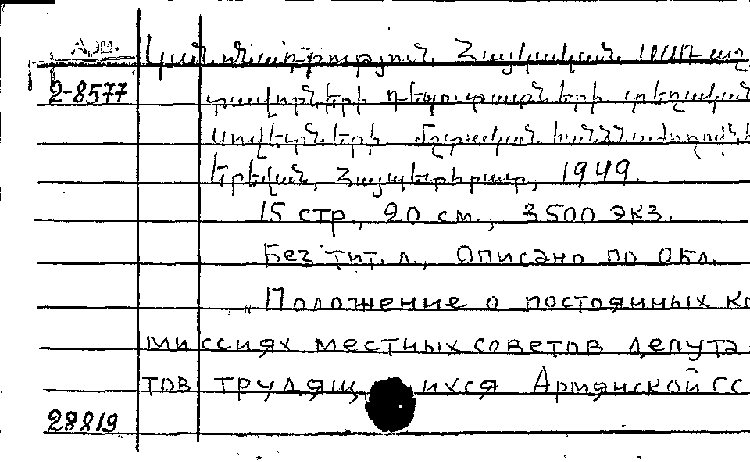 Арм.
Կանոնադրություն Հայկական ՍՍՌ աշ
2-8577
տավորների դեպուտատների տեղական
սովետների մշտական հանձնաժողովնե
Երևան, Հայպետհրատ, 1949.
15 стр., 20 см., 3500 экз.
Без тит. л., Описано по обл.
„Положение о постоянных ко
миссиях местных советов депута
тов трудящихся Армянской СС
28819